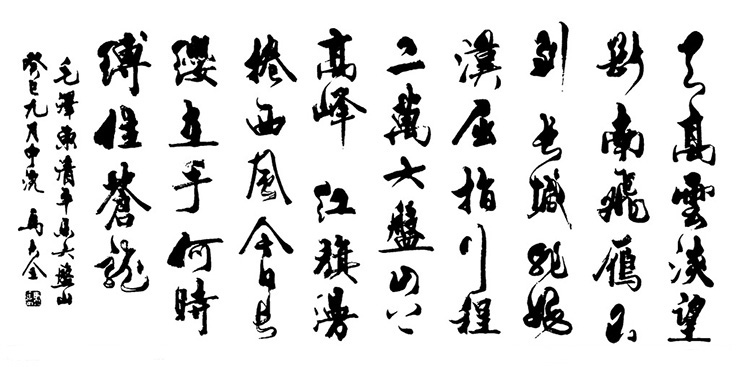 天高雲淡望
断南飛雁不
到長城非好
漢屈指行程
二萬六盤山上
高峰紅旗漫
捲西風今日長
纓在手何時
縛住蒼龍
毛澤東清平樂六盤山
癸巳九月中浣